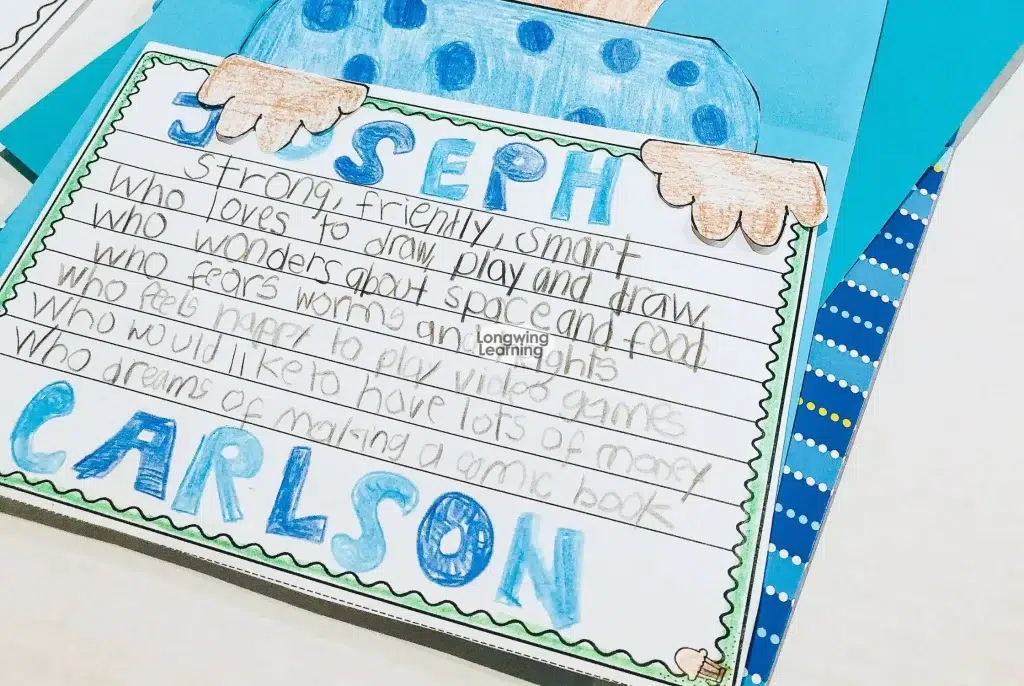 JOSEPH
strong, friendly, smart
who loves to draw, play and draw
who wonders about space and food
who fears worms and
who feels happy to play video games
Who would like to have lots of money
Who dreams of making a comic book
CARLSON
Longwing
Learning